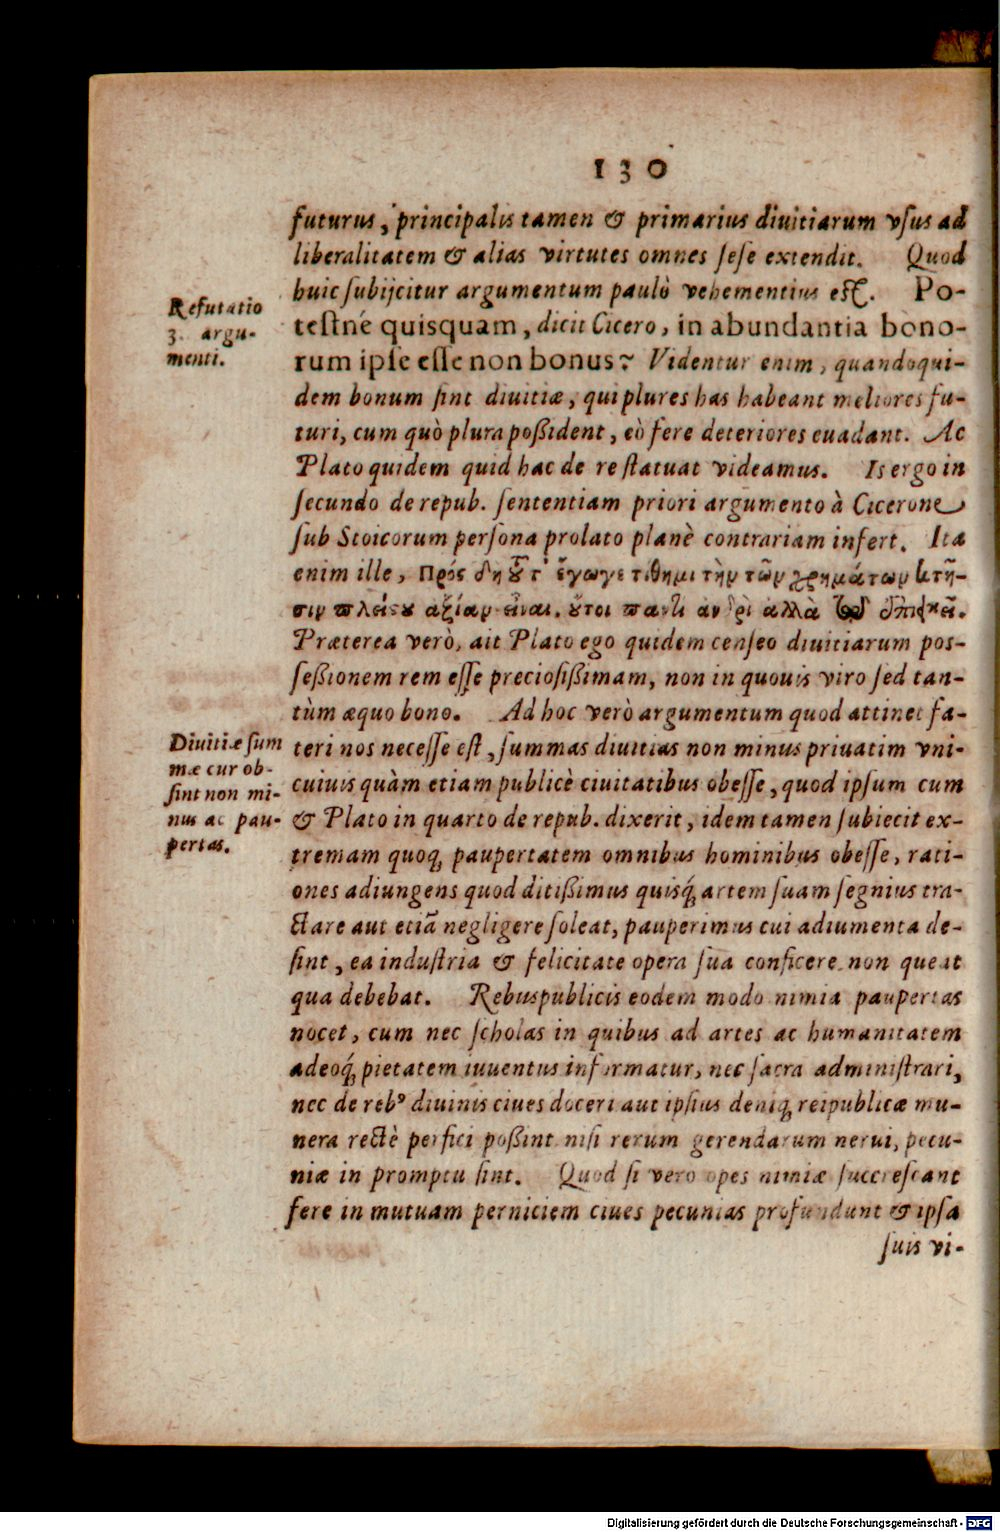 130
futurus, principalis tamen & primarius diuitiarum vſus ad
liberalitatem & alias virtutes omnes ſeſe extendit. Quod
huic ſubijcitur argumentum paulò vehementius eſt. Po-
Refutatio
3. argu-
menti.
teſtné quisquam, dicit Cicero, in abundantia bono-
rum ipſe eſſe non bonus? Videntur enim, quandoqui-
dem bonum ſint diuitiæ, qui plures has habeant meliores fu-
turi, cum quò plura poßident, eò fere deteriores euadant. Ac
Plato quidem quid hac de re ſtatuat videamus. Is ergo in
ſecundo de repub. ſententiam priori argumento à Cicerone
ſub Stoicorum perſona prolato planè contrariam infert. Ita
enim ille, Πρός δη ȣ̃τ' ἔγωγε τιθημι τὴν τῶν χρημάτων κτῆ-
σιν πλείςȣ αξίαν εἶναι. ȣ́τοι παντὶ ἀνδρὶ αλλὰ τῷ ἐπιεικεῖ.
Præterea verò, ait Plato ego quidem cenſeo diuitiarum poſ-
ſeßionem rem eſſe precioſißimam, non in quouis viro ſed tan-
tùm æquo bono. Ad hoc verò argumentum quod attinet fa-
Diuitiæ ſum
mæ cur ob-
ſint non mi-
nus ac pau-
pertas.
teri nos neceſſe eſt, ſummas diuitias non minus priuatim vni-
cuiuis quàm etiam publicè ciuitatibus obeſſe, quod ipſum cum
& Plato in quarto de repub. dixerit, idem tamen ſubiecit ex-
tremam quoq́ꝫ paupertatem omnibus hominibus obeſſe, rati-
ones adiungens quod ditißimus quisq́ꝫ artem ſuam ſegnius tra-
ctare aut etiã negligere ſoleat, pauperimus cui adiumenta de-
ſint, ea induſtria & felicitate opera ſua conficere non queat
qua debebat. Rebuspublicis eodem modo nimia paupertas
nocet, cum nec ſcholas in quibus ad artes ac humanitatem
adeoq́ꝫ pietatem iuuentus informatur, nec ſacra adminiſtrari,
nec de rebꝰ diuinis ciues doceri aut ipſius deniq́ꝫ reipublicæ mu-
nera rectè perfici poßint niſi rerum gerendarum nerui, pecu-
niæ in promptu ſint. Quod ſi vero opes nimiæ ſuccreſcant
fere in mutuam perniciem ciues pecunias profundunt & ipſa
ſuis vi-
Digitalisierung gefördert durch die Deutsche Forschungsgemeinschaft - DFG